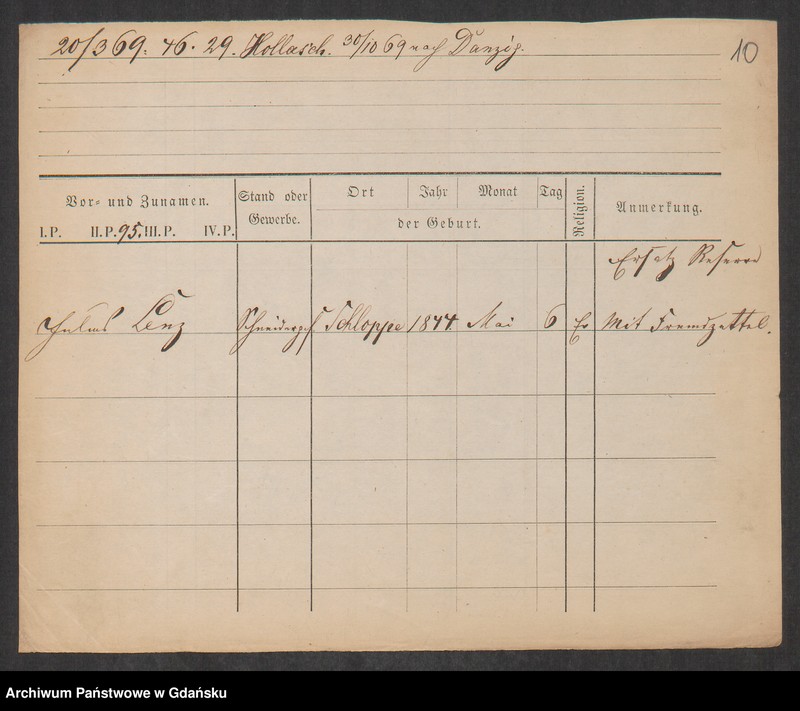 20/3 69. 46. 29. Hollasch. 30/10 69 nach Danzig.
10
Vor- und Zunamen.
I.P. II.P. 95. III.P. IV.P.
Stand oder
Gewerbe.
Ort Jahr Monat Tag
der Geburt.
Religion.
Anmerkung.
Ersatz Reserve
Julius Lenz Schneiderges Schloppe 1844 Mai 6 Ev Mit Fremdzettel.
Archiwum Państwowe w Gdańsku